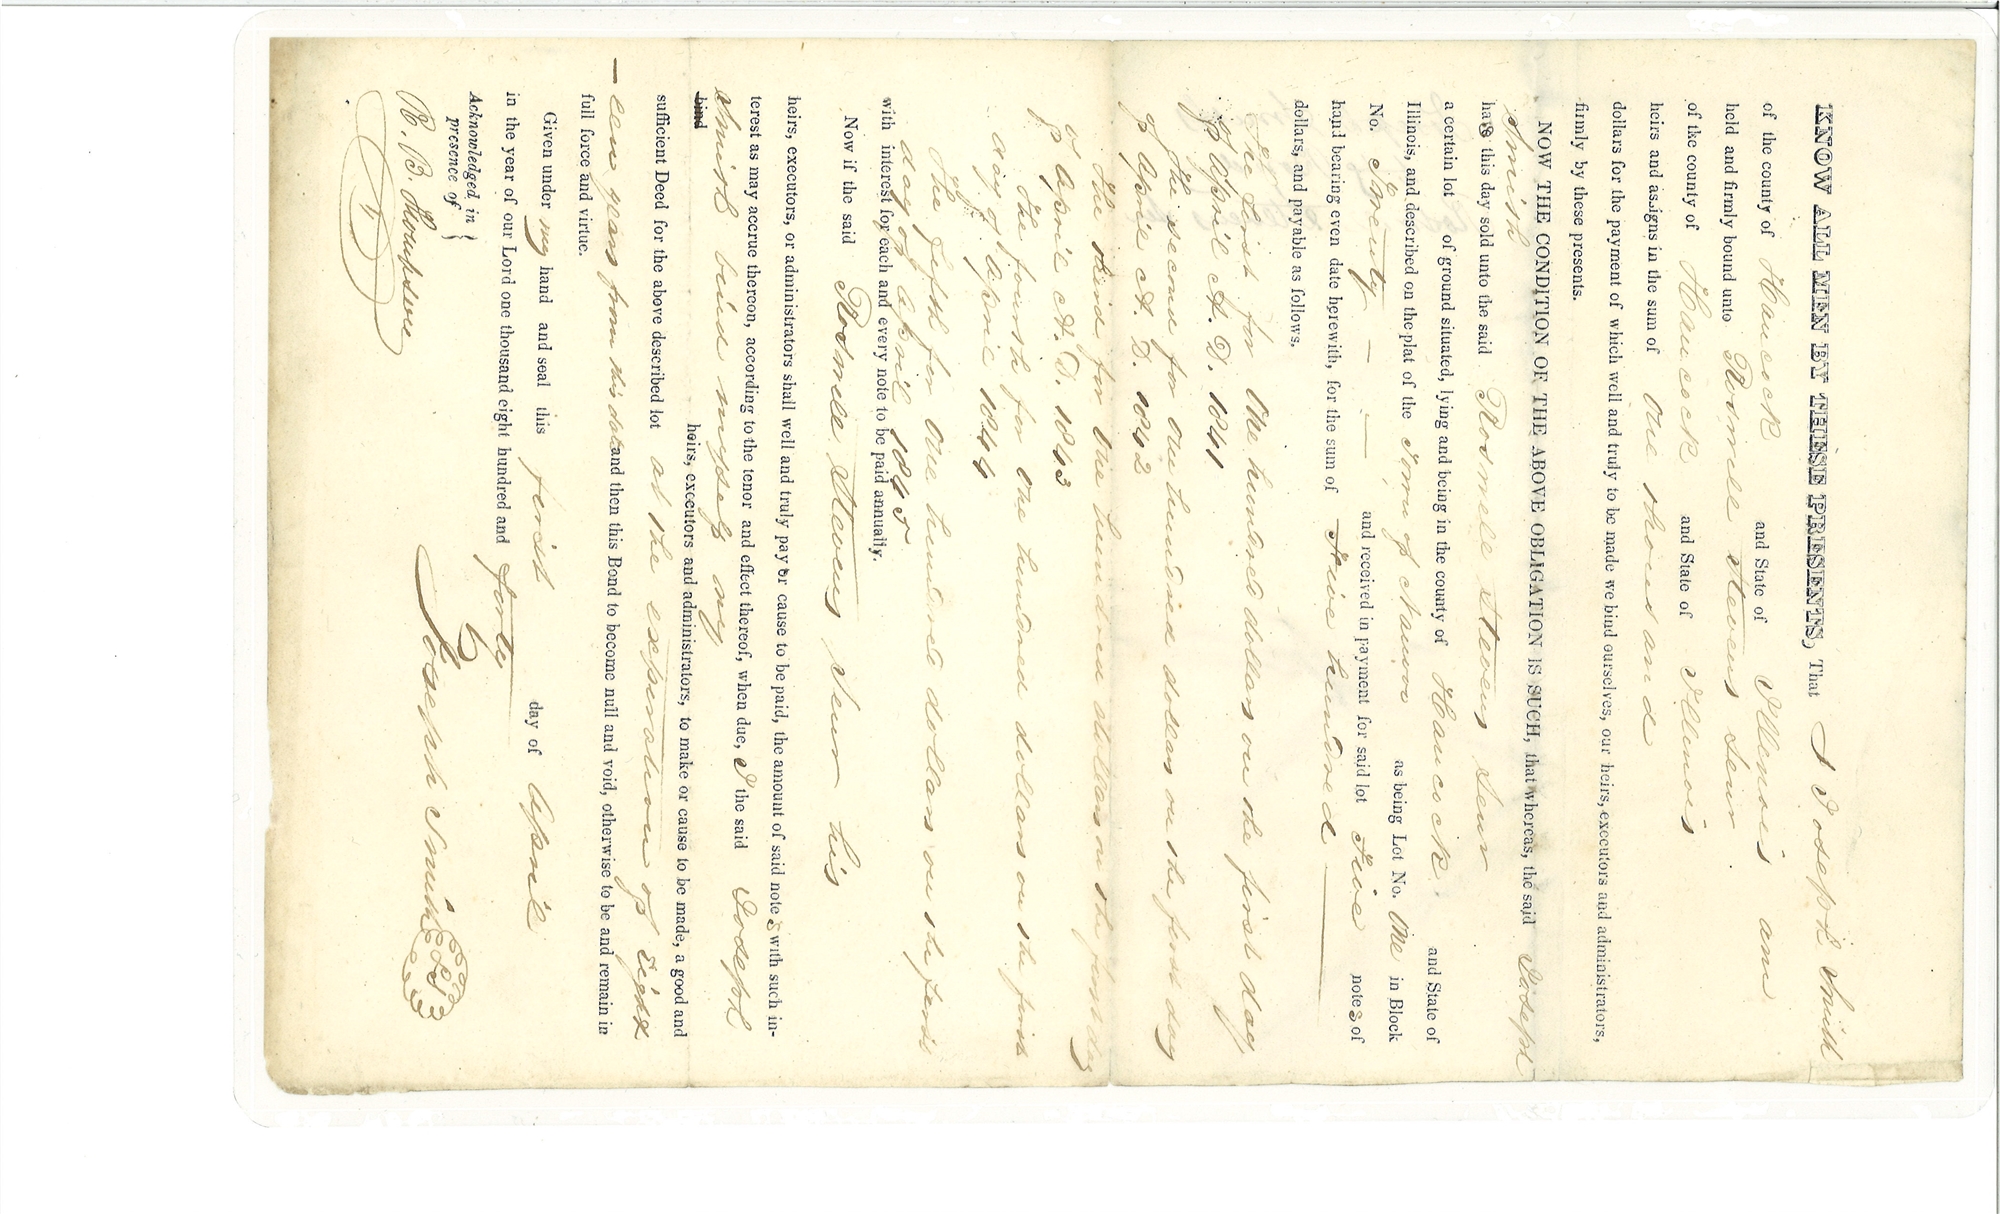 KNOW ALL MEN BY THESE PRESENTS, That I Joseph Smith
of the county of Hancock and State of Illenois am
held and firmly bound unto Rosmell Stevens Senr
of the county of Hancock and State of Illenois
heirs and assigns in the sum of One thousand
dollars for the payment of which well and truly to be made we bind ourselves, our heirs, executors and administrators,
firmly by these presents.
NOW THE CONDITION OF THE ABOVE OBLIGATION IS SUCH, that whereas, the said Joseph
Smith
has this day sold unto the said Rosmell Stevens Senr
a certain lot of ground situated, lying and being in the county of Hancock and State of
Illinois, and described on the plat of the Town of Nauvoo as being Lot No. One in Block
No. Twenty — — and received in payment for said lot Five notes of
hand bearing even date herewith, for the sum of Five hundred —
dollars, and payable as follows.
The first for One hundred dollars on the first day
of April A. D. 1841
The second for One hundred dollars on the first day
of April A. D. 1842
The third for One hundred dollars on the first day
of April A. D. 1843
The fourth for One hundred dollars on the first
day of April 1844
The fifth for One hundred dollars on the first
day of April 1845
with interest for each and every note to be paid annually.
Now if the said Rosmell Stevens Senr his
heirs, executors, or administrators shall well and truly pay or cause to be paid, the amount of said notes with such in-
terest as may accrue thereon, according to the tenor and effect thereof, when due, I the said Joseph
Smith bind myself my
bind heirs, executors and administrators, to make or cause to be made, a good and
sufficient Deed for the above described lot at the expiration of Eight
—een years from this date and then this Bond to become null and void, otherwise to be and remain in
full force and virtue.
Given under my hand and seal this first day of April
in the year of our Lord one thousand eight hundred and forty
Acknowledged in
presence of
Joseph Smith LS
R. B. Thompson